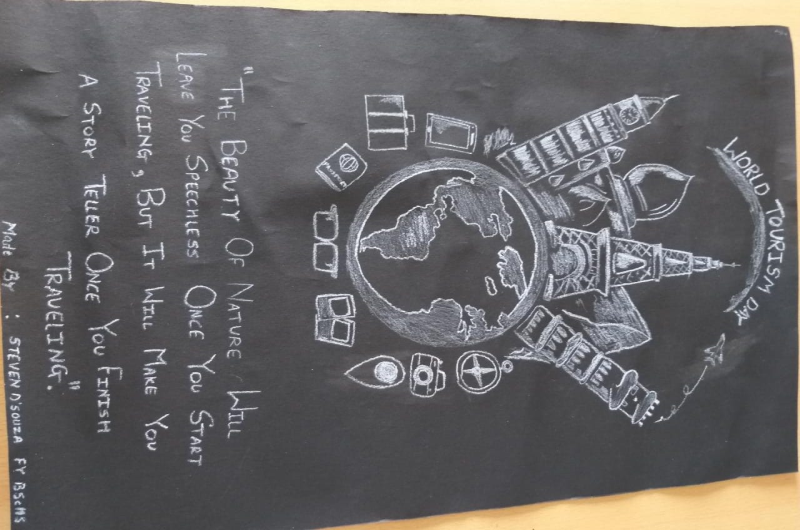 WORLD TOURISM DAY
PASSPORT
"THE BEAUTY OF NATURE WILL
LEAVE YOU SPEECHLESS ONCE YOU START
TRAVELING, BUT IT WILL MAKE YOU
A STORY TELLER ONCE YOU FINISH
TRAVELING."
Made By : STEVEN D'SOUZA FY BScHS